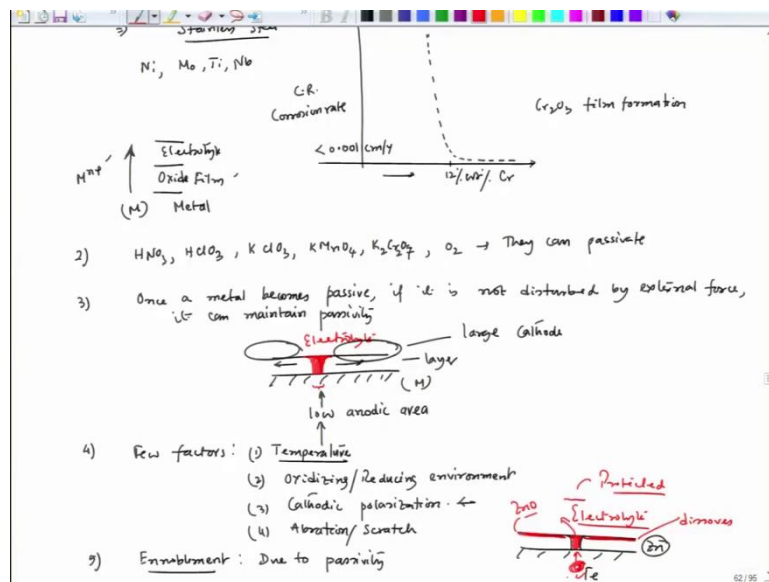 Stainless Steel
Ni, Mo, Ti, Nb
C.R.
Corrosion rate
Cr2O3 film formation
< 0.001 cm/y
12% wt% Cr
Electrolyte
M^n+
Oxide Film
(M) Metal
2) HNO3, HClO3, KClO3, KMnO4, K2Cr2O7, O2 → They can passivate
3) Once a metal becomes passive, if it is not disturbed by external force,
it can maintain passivity
Electrolyte
large cathode
layer
(M)
low anodic area
4) Few factors: (1) Temperature
(2) Oxidizing/Reducing environment
(3) Cathodic polarization. ←
(4) Abration/Scratch
Protected
ZnO
Electrolyte
dissoves
Zn
Fe
5) Ennoblment: Due to passivity
62/95